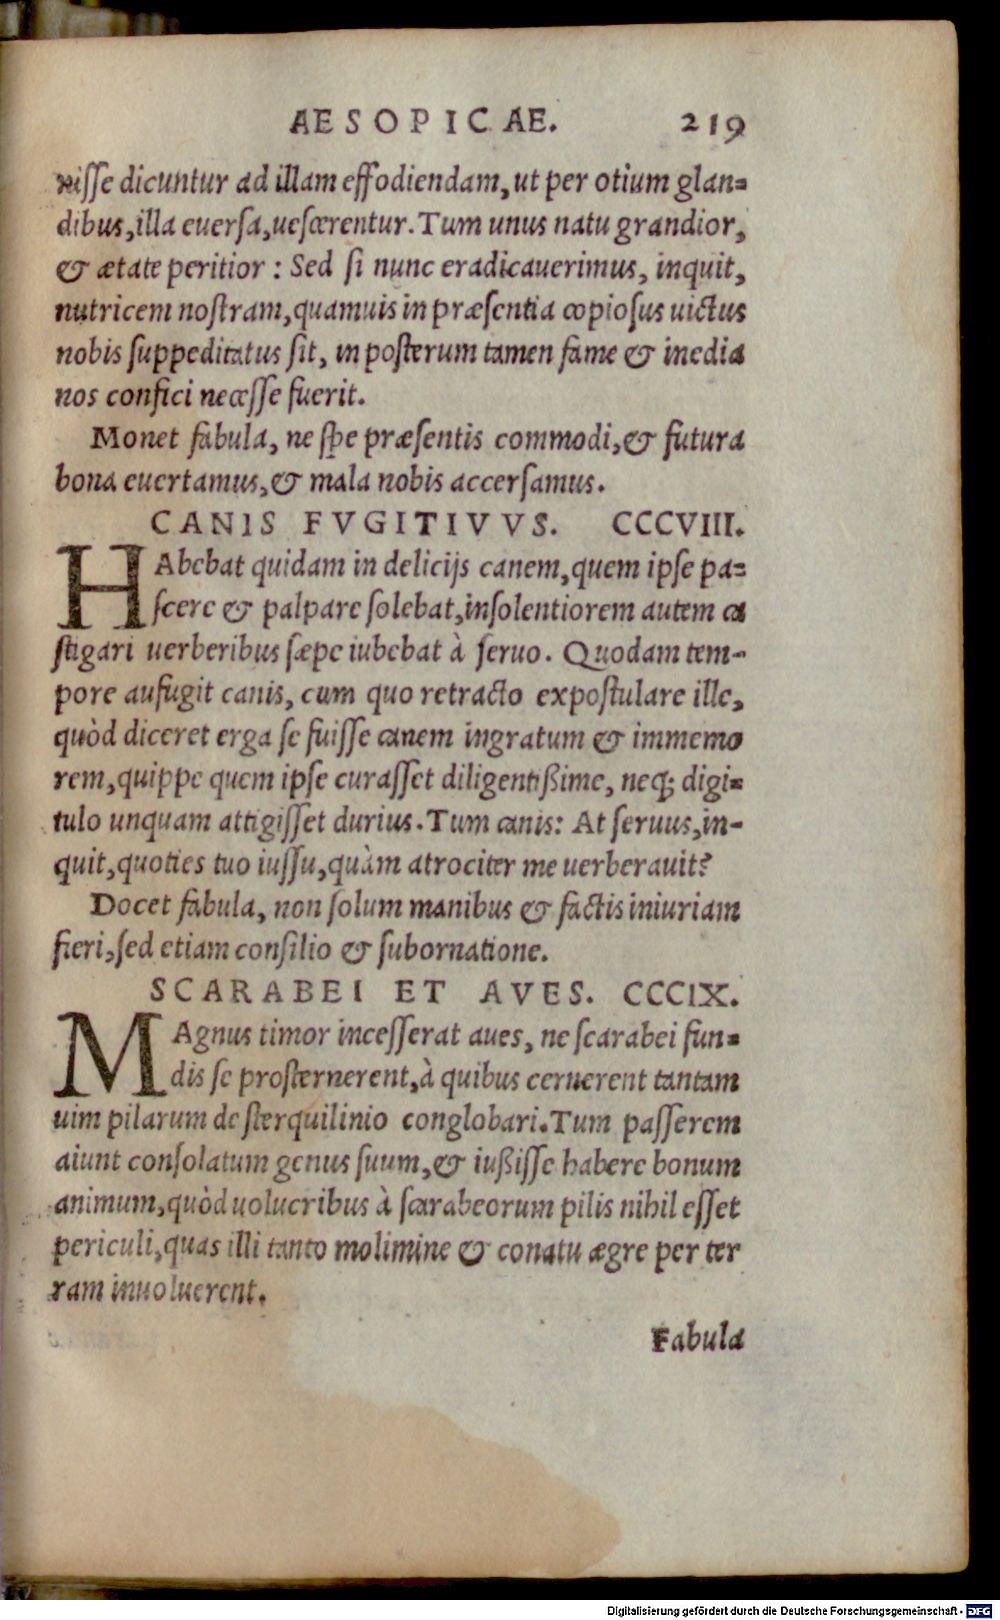 AESOPICAE. 219
nisse dicuntur ad illam effodiendam, ut per otium glan=
dibus, illa euersa, uescerentur. Tum unus natu grandior,
& ætate peritior: Sed si nunc eradicauerimus, inquit,
nutricem nostram, quamuis in præsentia copiosus uictus
nobis suppeditatus sit, in posterum tamen fame & inedia
nos confici necesse fuerit.
Monet fabula, ne spe præsentis commodi, & futura
bona euertamus, & mala nobis accersamus.
CANIS FVGITIVVS. CCCVIII.
HAbebat quidam in delicijs canem, quem ipse pa=
scere & palpare solebat, insolentiorem autem ca
stigari uerberibus sæpe iubebat à seruo. Quodam tem-
pore aufugit canis, cum quo retracto expostulare ille,
quòd diceret erga se fuisse canem ingratum & immemo
rem, quippe quem ipse curasset diligentißime, neq; digi=
tulo unquam attigisset durius. Tum canis: At seruus, in-
quit, quoties tuo iussu, quàm atrociter me uerberauit?
Docet fabula, non solum manibus & factis iniuriam
fieri, sed etiam consilio & subornatione.
SCARABEI ET AVES. CCCIX.
MAgnus timor incesserat aues, ne scarabei fun=
dis se prosternerent, à quibus cernerent tantam
uim pilarum de sterquilinio conglobari. Tum passerem
aiunt consolatum genus suum, & iußisse habere bonum
animum, quòd uolucribus à scarabeorum pilis nihil esset
periculi, quas illi tanto molimine & conatu ægre per ter
ram inuoluerent.
Fabula
Digitalisierung gefördert durch die Deutsche Forschungsgemeinschaft - DFG